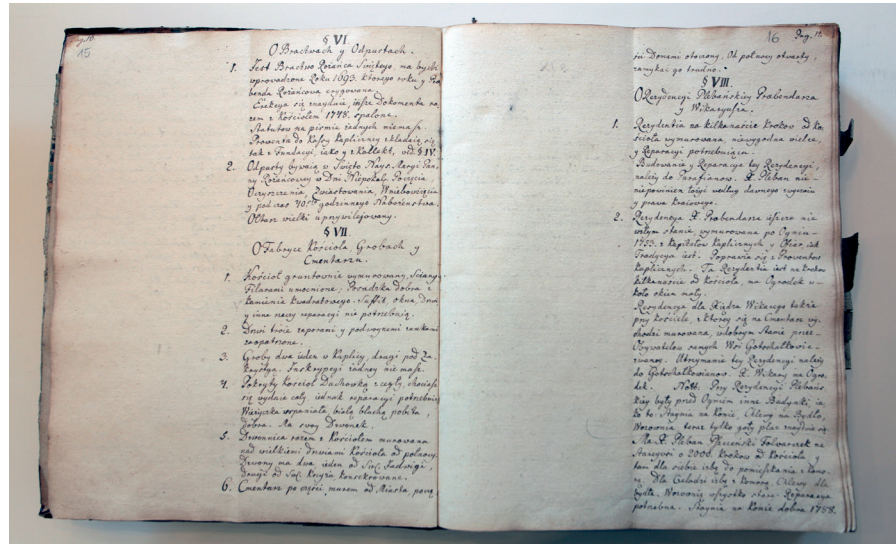 Pag. 10.
15
§ VI
O Bractwach y Odpustach.
1. Jest Bractwo Rożańca Swiętego, na być
wprowadzone Roku 1693. ktorego roku y Prae
benda Rożańcowa erygowana.
Erekcya się znayduie, insze Dokumenta ra
zem z Kościołem 1748. spalone.
Statutow na piśmie żadnych niemasz.
Prowenta do Kassy Kapliczney składaią się
tak z Fundacyi, iako y z Kollekt, vid. § IV.
2. Odpusty bywaią w Swięto Nays. Maryi Pan
ny Rożańcowey w Dni Niepokal. Poczęcia,
Oczyszczenia, Zwiastowania, Wniebowzięcia
y podczas 40sto godzinnego Nabożeństwa.
Ołtarz wielki uprzywilejowany.
§ VII
O Fabryce Kościoła, Grobach y
Cmentarzu.
1. Kościoł gruntownie wymurowany, Sciany
Filarami umocnione, Posadzka dobra z
kamienia kwadratowego. Suffit, okna, Drzwi
y inne rzeczy reparacyi nie potrzebuią.
2. Drzwi troie zaporami y podwoynemi zamkami
zaopatrzone.
3. Groby dwa ieden w Kaplicy, drugi pod Za
krystyą. Inskrypcyi żadney nie masz.
4. Pokryty Kościoł Dachowką z cegły, chociasz
się wydaie cały, iednak reparacyi potrzebuie
Wieżyczka wspaniała, białą blachą pobita,
dobra. Ma swoy Dzwonek.
5. Dzwonnica razem z Kościołem murowana
nad wielkiemi drzwiami Kościoła od połnocy.
Dzwony ma dwa ieden od Swię. Jadwigi,
drugi od Swię. Krzyża konsekrowane.
6. Cmentarz po części murem od Miasta, po czę
16
Pag. 12.
ści Domami otoczony, Od połnocy otwarty,
zamykać go trudno.
§ VIII.
O Rezydencyi Plebańskiey Praebendarza
y Wikaryusza.
1. Rezydentia na kilkanaście krokow od Ko
ścioła wymurowana, niewygodna wielce,
y Reparacyi potrzebuiąca.
Budowania y Reparacya tey Rezydencyi,
należy do Parafianow. X. Pleban nie
niepowinien łożyć według dawnego zwyczaiu
y prawa kraiowego.
2. Rezydencya X. Praebendarza ieszcze nie
w złym stanie, wymurowana po Ogniu
1753. z Kapitałow Kaplicznych y Ofiar, iak
Tradycya iest. Poprawia się z Prowentow
Kaplicznych. Ta Rezydentia iest na krokow
kilkanaście od Kościoła, ma Ogrodek w
koło okien mały.
Rezydencya dla Xiędza Wikarego także
przy kościele, z ktorey się na Cmentarz wy
chodzi murowana, w dobrym stanie przez
Obywatelow samych Wsi Gotschałkowic
Utrzymanie tey Rezydencyi należy
do Gotschałkowianow. X. Wikary ma Ogro
dek. Notb. Przy Rezydencyi Plebańs
kiey były przed Ogniem inne Budynki, ia
ko to: Staynia na Konie, Chlewy na Bydło,
Wozownia teraz tylko goły plac znayduie się
Ma X. Pleban Pszczeński Folwarczek na
Starejwsi o 2000. krokow od Kościoła y
tam dla siebie izbę do pomieszkania z komo
rą. Dla Czeladzi izbę z komorą, Chlewy dla
bydła. Wozownią wszystko stare. Reparacya
potrzebna. Staynia na Konie dobra 1788.